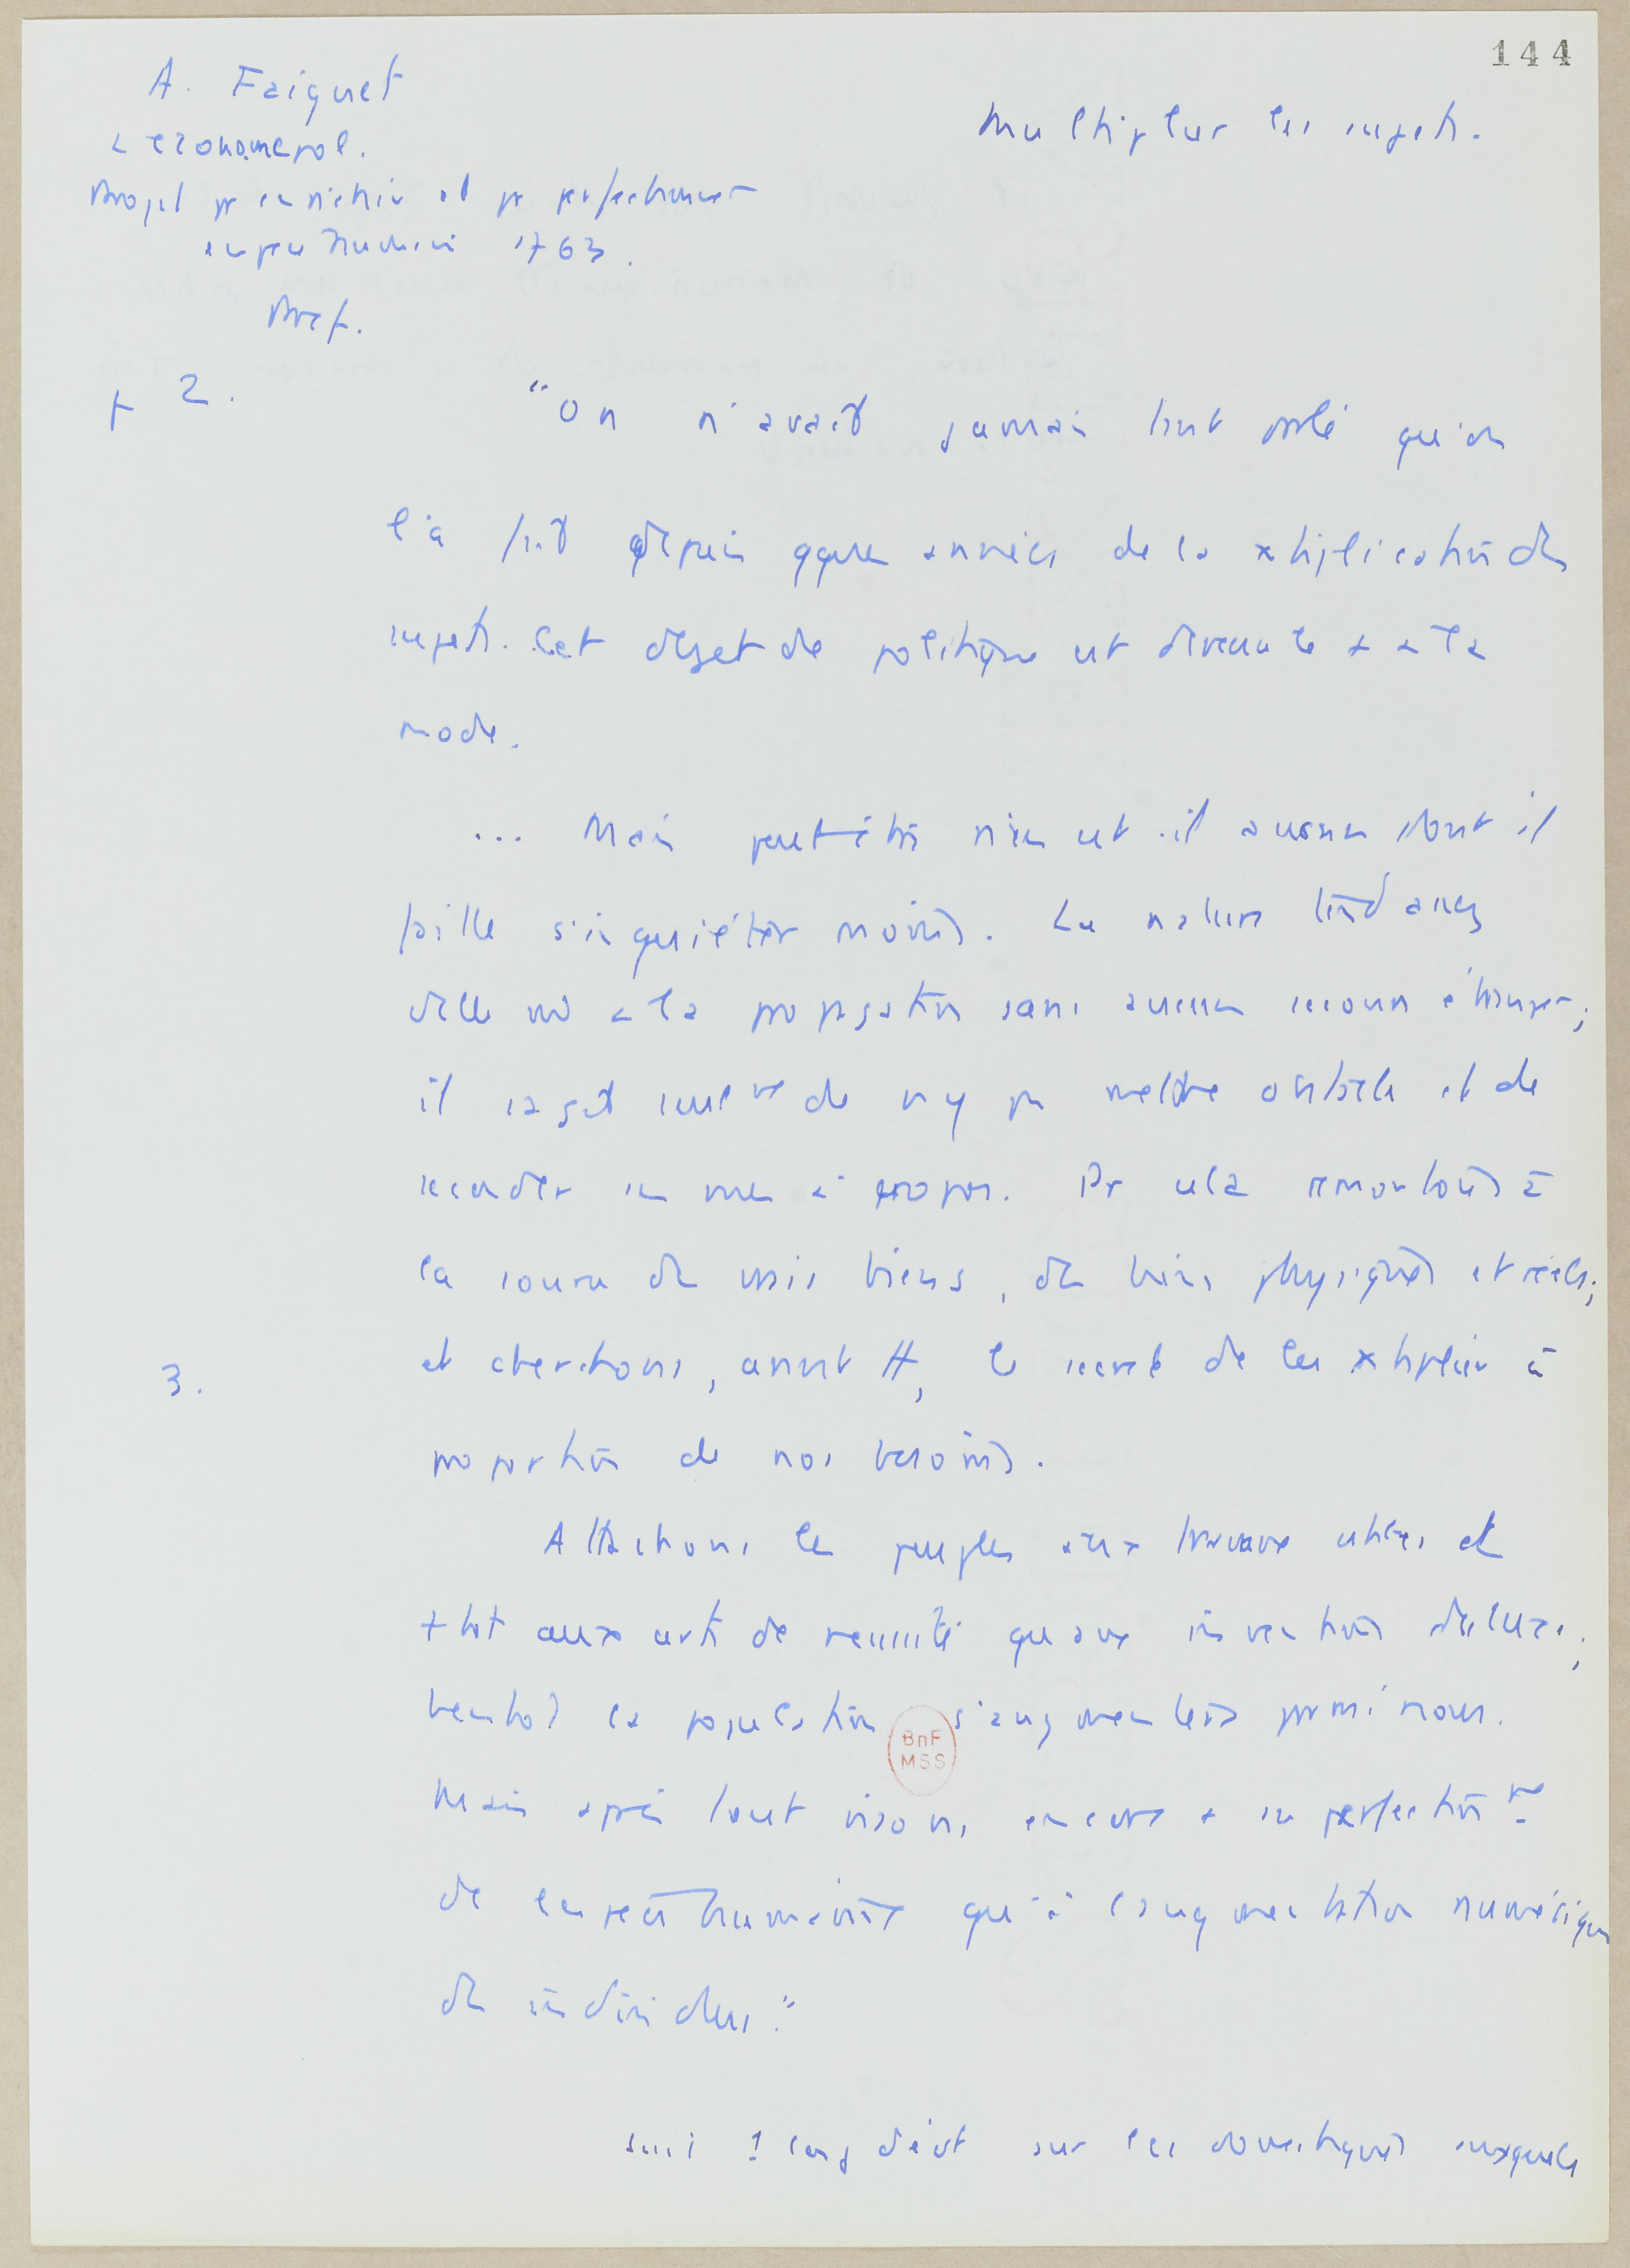 144
A. Faiguet
L'econome pol.
Projet pr enrichir et pr perfectionner
Multiplier les sujets.
1763.
Pref.
+ 2.
"On n'avait jamais tant parlé qu'on
l'a fait depuis qques années de la xtiplication des
sujets. Cet objet de politique est devenu le + à la
mode.
... Mais peut-être n'en est-il aucun dont il
faille s'inquiéter moins. La nature tend assez
d'elle mê à la propagation sans aucun secours étranger;
il s'agit seult de n'y pas mettre obstacle et de
seconder ses vues à propos. Pr cela remontons à
la source des vrais biens, des biens physiques et réels;
3.
et cherchons, avant tt, le secret de les xtiplier à
proportion de nos besoins.
Attachons les peuples aux travaux utiles et
+tot aux arts de nécessité qu'aux inventions du luxe;
bientot la population s'augmentera parmi nous.
BnF
MSS
Mais après tout visons encore + au perfectionnt
de l'espèce humaine qu'à l'augmentation numérique
des individus."
suit 1 long dévt sur les domestiques auxquels